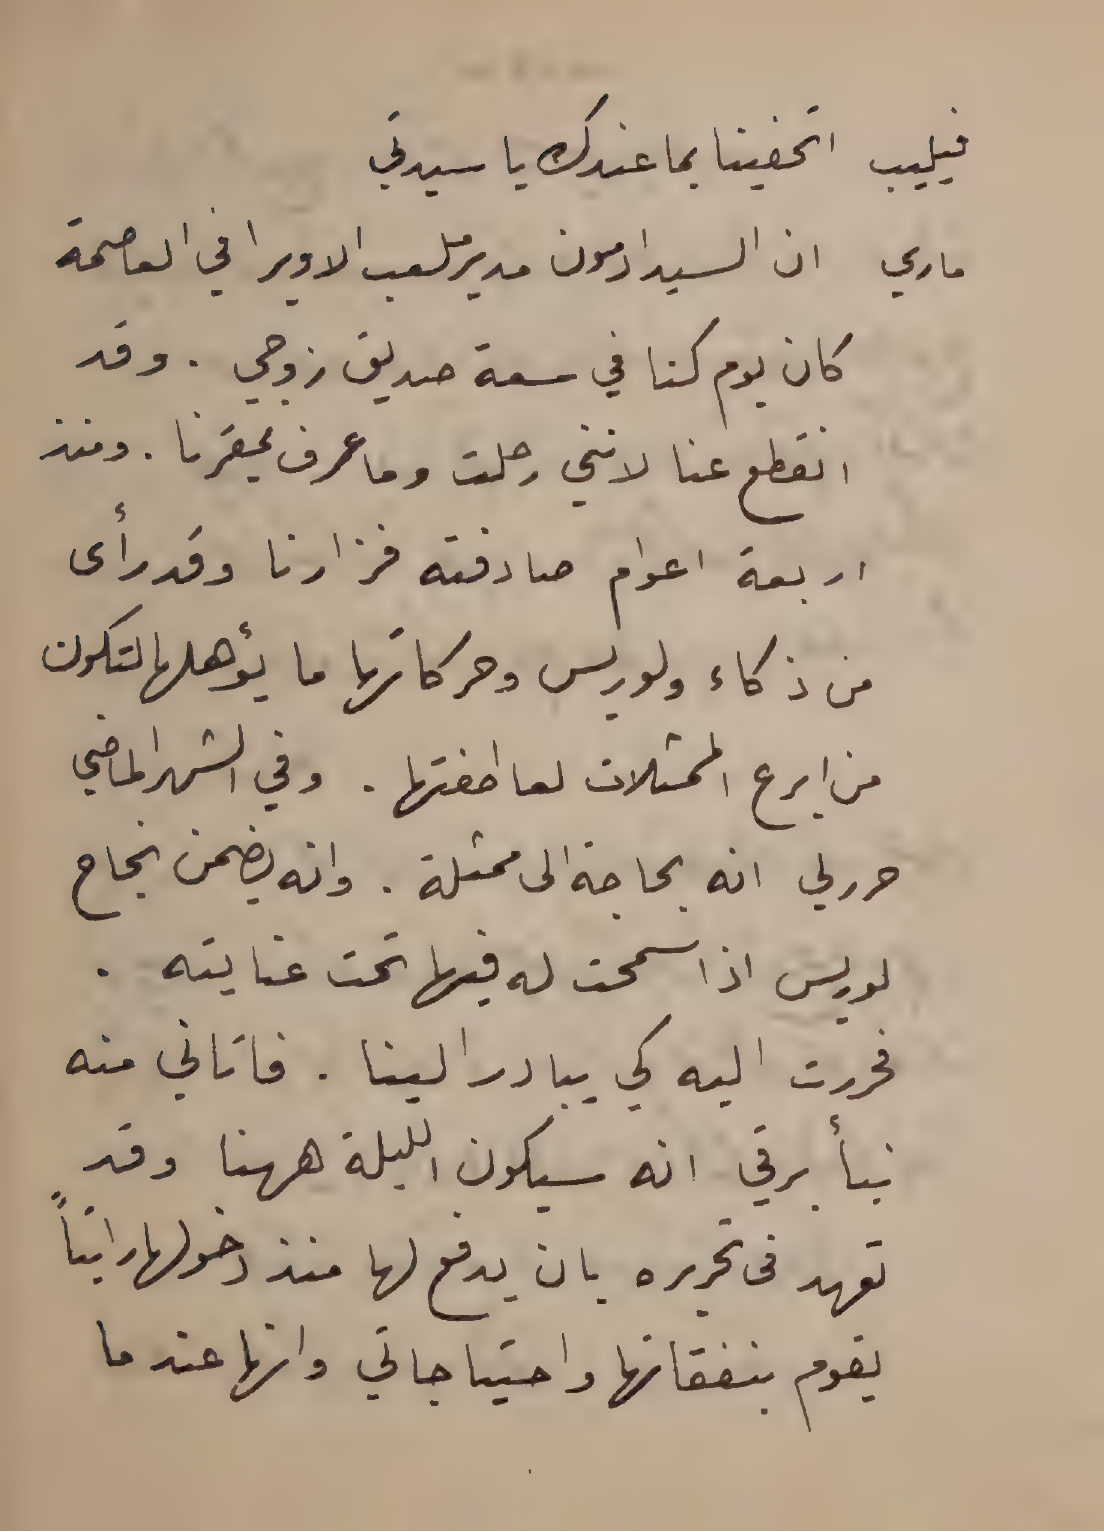 فيليب اتحفينا بما عندك يا سيدتي
ماري ان السيد ادمون مدير ملعب الاوبرا في العاصمة
كان يوم كنا في سعة صديق زوجي . وقد
انقطع عنا لانني رحلت وما عرف بمقرنا . ومنذ
اربعة اعوام صادفته فزارنا وقد رأى
من ذكاء ولوريس وحركاتها ما يؤهلها لتكون
من ابرع الممثلات لعاطفتها . وفي الشهر الماضي
حرر لي انه بحاجة الى ممثلة . وانه يضمن نجاح
لوريس اذا سمحت له فيها تحت عنايته .
فحررت اليه كي يبادر الينا . فاتاني منه
نبأ برقي انه سيكون الليلة ههنا وقد
تعهد في تحريره بان يدفع لها منذ دخولها راتباً
يقوم بنفقاتها واحتياجاتي وانها عند ما